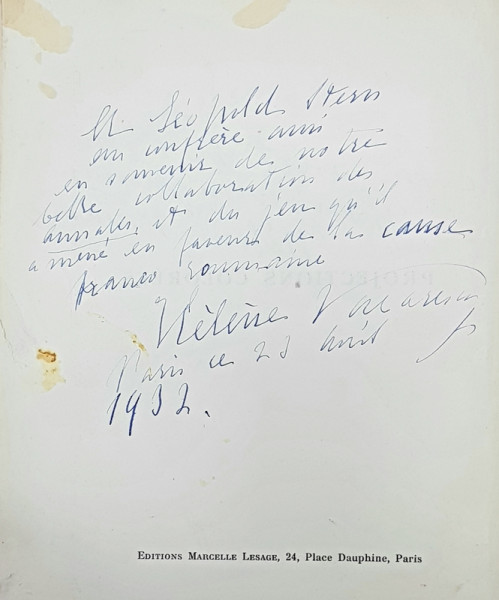 A Léopold Stern
au confrère ami
en souvenir de notre
belle collaboration des
annales, et du jeu qu'il
a mené en faveur de la cause
franco roumaine
Hélène Vacaresco
Paris ce 23 avril
1932.
EDITIONS MARCELLE LESAGE, 24, Place Dauphine, Paris